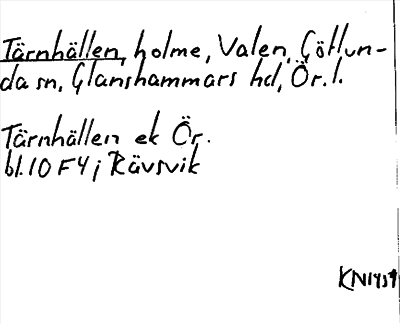 Tärnhällen, holme, Valen, Götlun-
da sn, Glanshammars hd, Ör. l.
Tärnhällen ek Ör.
bl. 10 F 4 j Rävsvik